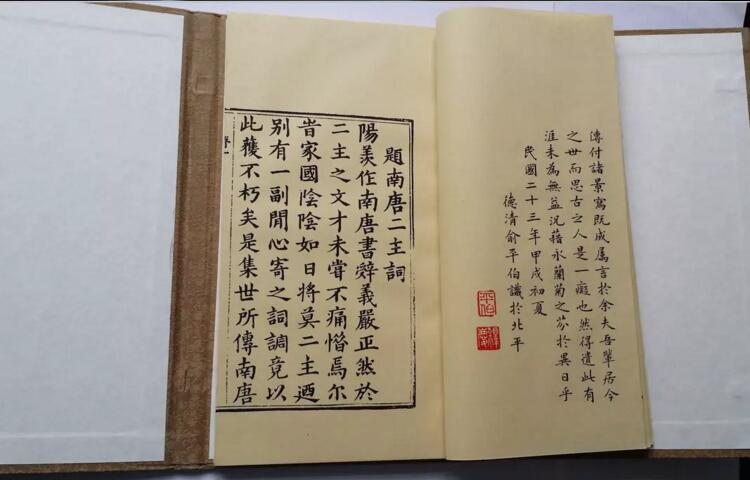 傳付諸景寫既成属言於余夫吾輩居今
之世而思古之人是一癡也然得遣此有
涯未為無益況藉永蘭菊之芬於異日乎
民國二十三年甲戌初夏
德清俞平伯識於北平
平伯
題南唐二主詞
陽羨作南唐書辭義嚴正然於
二主之文才未嘗不痛惜焉尔
昔家國陰陰如日將莫二主迺
别有一副閒心寄之詞調竟以
此蓷不朽矣是集世所傳南唐